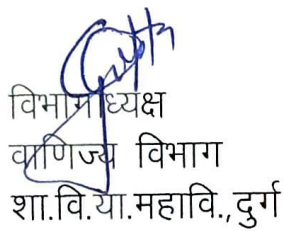 Gupta
विभागाध्यक्ष
वाणिज्य विभाग
शा.वि.या.महावि.,दुर्ग